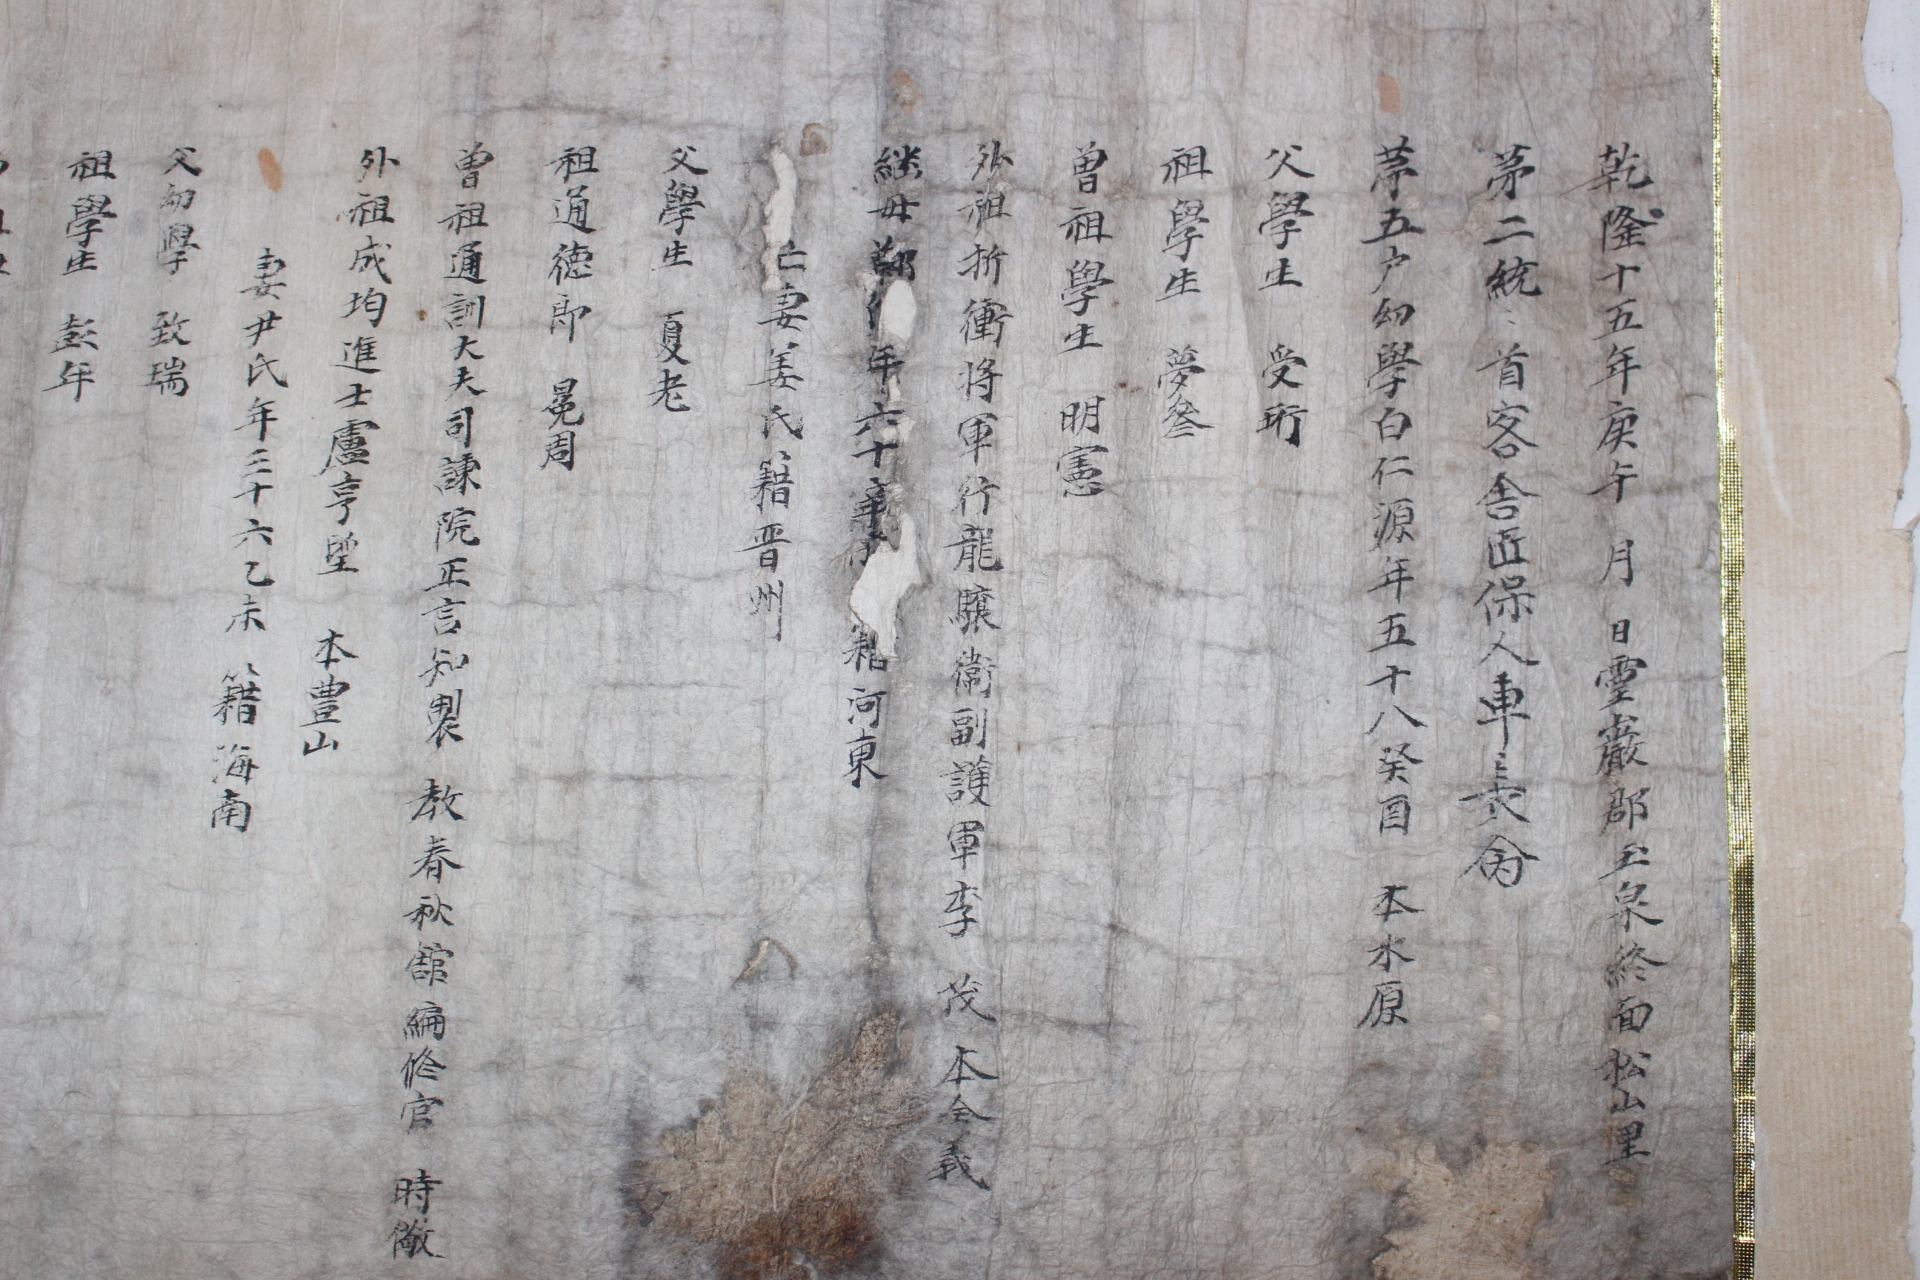 乾隆十五年庚午 月 日靈巖郡玉泉終面松山里
第二統〻首客舍匠保人車長金
第五户幼學白仁源年五十八癸酉 本水原
父學生 受珩
祖學生 夢叅
曽祖學生 明憲
外祖折衝将軍行龍驤衛副護軍李 茂 本全義
継母鄭 年六十 籍河東
亡妻姜氏籍晋州
父學生 夏老
祖通徳郎 冕周
曽祖通訓大夫司諫院正言知製 教春秋館編修官 時儆
外祖成均進士盧亨望 本豊山
妻尹氏年三十六乙未 籍海南
父幼學 致瑞
祖學生 彭年